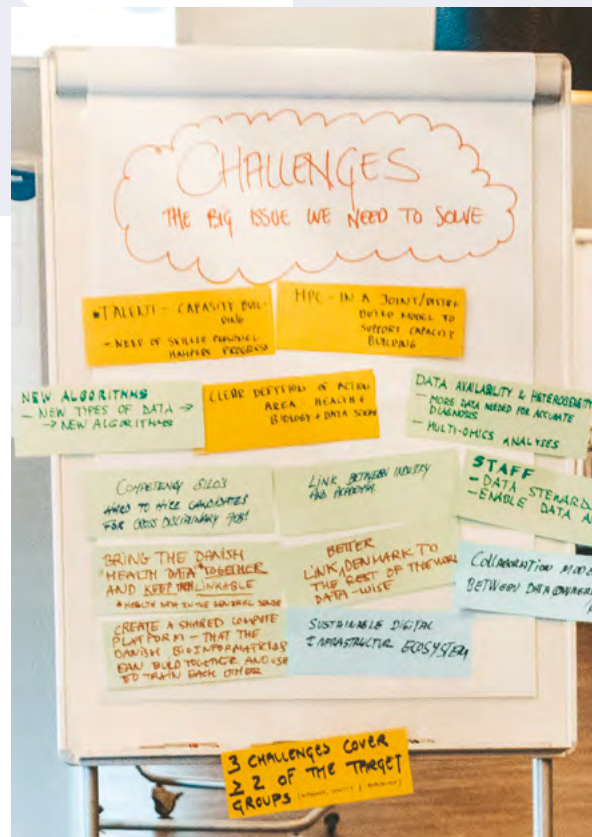 CHALLENGES
THE BIG ISSUE WE NEED TO SOLVE
TALENT - CAPACITY BUIL-
DING
- NEED OF SKILLED PERSONEL
HAMPERS PROGRESS
HPC - IN A JOINT/DISTRI
BUTED MODEL TO
SUPPORT CAPACITY
BUILDING
NEW ALGORITHMS
- NEW TYPES OF DATA →
→ NEW ALGORITHMS
CLEAR DEFITION OF ACTION
AREA: HEALTH +
BIOLOGY + DATA
DATA AVAILABILITY & HETEROGENEITY
- MORE DATA NEEDED FOR ACCURATE
DIAGNOSIS
- MULTI-OMICS ANALYSES
COMPETENCY SILOS
HARD TO HIRE CANDIDATES
FOR CROSS DISCIPLINARY POST
LINK BETWEEN INDUSTRY
AND ACADEMIA
STAFF
- DATA STEWARD
- ENABLE DATA A
BRING THE DANISH
HEALTH DATA* TOGETHER
AND KEEP THEM LINKABLE
* HEALTH DATA IN THE GENERAL SENSE
BETTER
LINK DENMARK TO
THE REST OF THE WORLD
DATA-WISE
COLLABORATION MODE
BETWEEN DATA OWNER
CREATE A SHARED COMPUTE
PLATFORM - THAT THE
DANISH BIOINFORMATICIAS
CAN BUILD TOGETHER AND USE
TO TRAIN EACH OTHER
SUSTAINABLE DIGITAL
INFRASTRUCTUR ECOSYSTEM
3 CHALLENGES COVER
≥ 2 OF THE TARGET
GROUPS